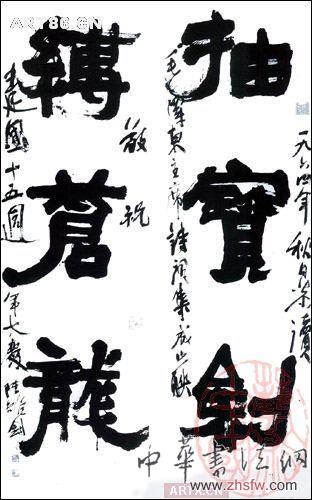 一九六四年秋日恭讀
抽寶劍
毛澤東主席詩詞集成此聯
敬祝
縛蒼龍
建國十五週年大慶 陸維釗
ART86.CN
中華書法網
www.zhsfw.com
ARTX.CN